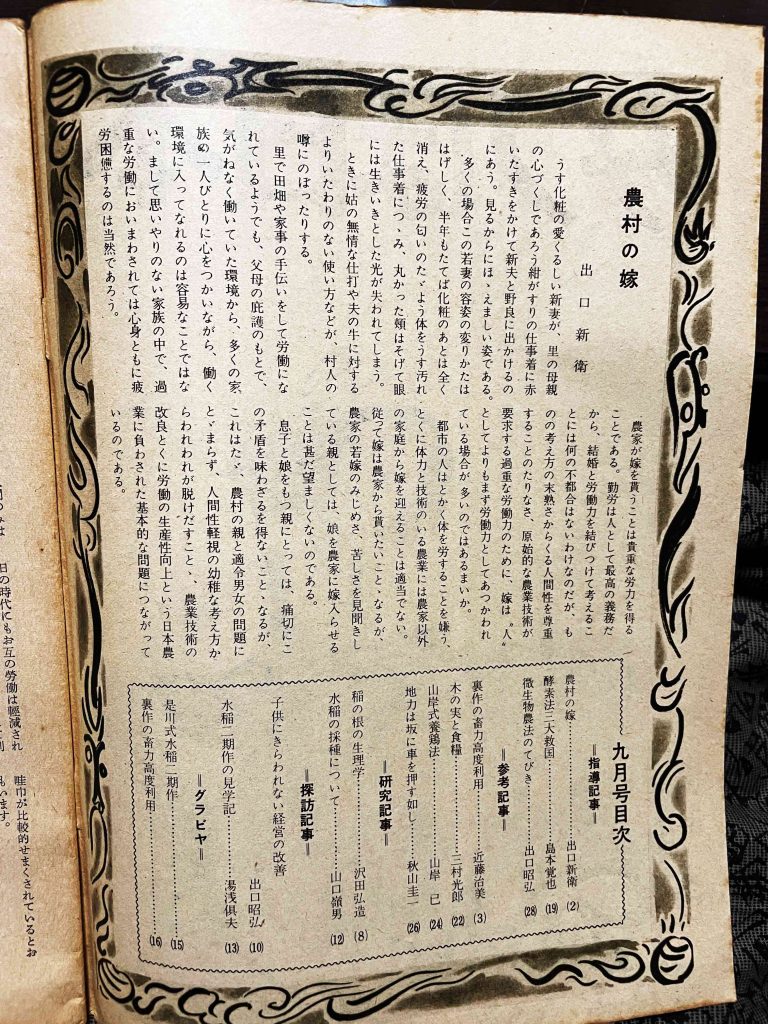 農村の嫁
出口新衛
うす化粧の愛くるしい新妻が、里の母親
の心づくしであろう紺がすりの仕事着に赤
いたすきをかけて新夫と野良に出かけるの
にあう。見るからにほゝえましい姿である。
多くの場合この若妻の容姿の変りかたは
はげしく、半年もたてば化粧のあとは全く
消え、疲労の匂いのたゞよう体をうす汚れ
た仕事着につゝみ、丸かった頬はそげて眼
には生きいきとした光が失われてしまう。
ときに姑の無情な仕打や夫の牛に対する
よりいたわりのない使い方などが、村人の
噂にのぼったりする。
里で田畑や家事の手伝いをして労働にな
れているようでも、父母の庇護のもとで、
気がねなく働いていた環境から、多くの家
族の一人びとりに心をつかいながら、働く
環境に入ってなれるのは容易なことではな
い。まして思いやりのない家族の中で、過
重な労働においまわされては心身ともに疲
労困憊するのは当然であろう。
農家が嫁を貰うことは貴重な労力を得る
ことである。勤労は人として最高の義務だ
から、結婚と労働力を結びつけて考えるこ
とには何の不都合はないわけなのだが、も
のの考え方の未熟さからくる人間性を尊重
することのたりなさ、原始的な農業技術が
要求する過重な労働力のために、嫁は〝人〟
としてよりもまず労働力としてあつかわれ
ている場合が多いのではあるまいか。
都市の人はとかく体を労することを嫌う、
とくに体力と技術のいる農業には農家以外
の家庭から嫁を迎えることは適当でない。
従つて嫁は農家から貰いたいことゝなるが、
農家の若嫁のみじめさ、苦しさを見聞きし
ている親としては、娘を農家に嫁入らせる
ことは甚だ望ましくないのである。
息子と娘をもつ親にとっては、痛切にこ
の矛盾を味わざるを得ないことゝなるが、
これはたゞ、農村の親と適令男女の問題に
とゞまらず、人間性軽視の幼稚な考え方か
らわれわれが脱けだすことゝ、農業技術の
改良とくに労働の生産性向上という日本農
業に負わされた基本的な問題につながって
いるのである。
九月号目次
＝指導記事＝
農村の嫁……出口新衛 (2)
酵素法三大救国……島本覚也 (19)
微生物農法のてびき……出口昭弘 (28)
＝参考記事＝
裏作の畜力高度利用……近藤治美 (3)
木の実と食糧……三村光郎 (22)
山岸式養鶏法……山岸 巳 (24)
地力は坂に車を押す如し……秋山圭一 (26)
＝研究記事＝
稲の根の生理学……沢田弘造 (8)
水稲の採種について……山口嶺男 (12)
＝探訪記事＝
子供にきらわれない経営の改善
出口昭弘 (10)
水稲二期作の見学記……湯浅俱夫 (13)
＝グラビヤ＝
是川式水稲二期作…… (15)
裏作の畜力高度利用…… (16)
日の時代にもお互の労働は軽減され
畦巾が比較的せまくされているとお
います。